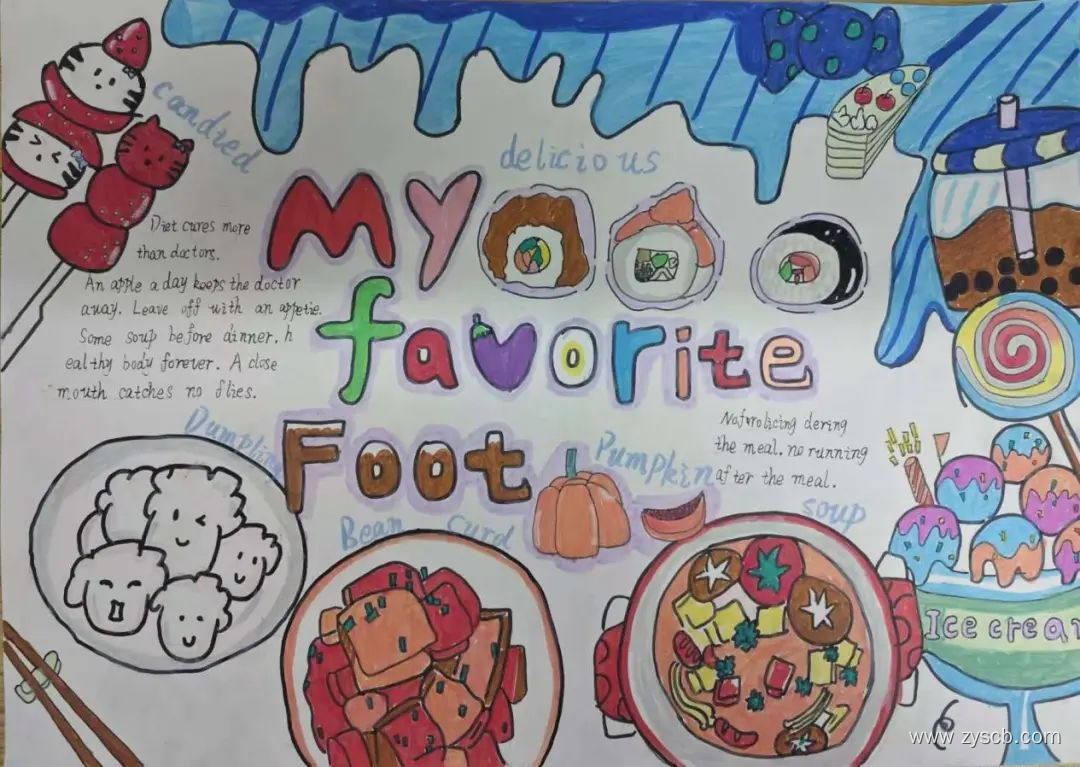 candied
delicious
My
favorite
Foot
Diet cures more
than doctors.
An apple a day keeps the doctor
away. Leave off with an appetie.
Some soup before dinner, h
ealthy body forever. A close
mouth catches no flies.
Dumpling
Bean curd
Pumpkin
Nofrolicing dering
the meal. no running
after the meal.
soup
Ice cream
www.zyscb.com